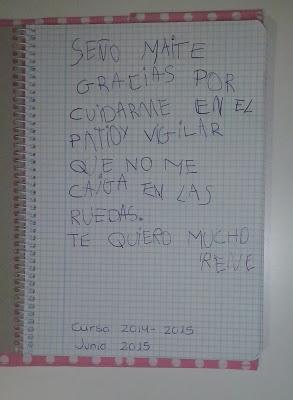 SEÑO MAITE
GRACIAS POR
CUIDARME EN EL
PATIOY VIGILAR
QUE NO ME
CAIGA EN LAS
RUEDAS.
TE QUIERO MUCHO
RENE
Curso 2014-2015
Junio 2015